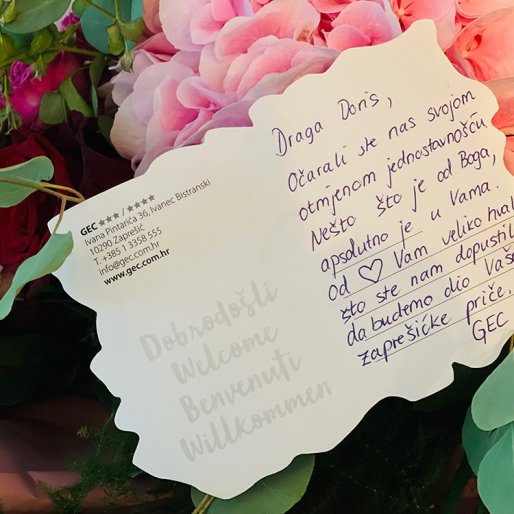 GEC ★★★ / ★★★★
Ivana Pintarića 36, Ivanec Bistranski
10290 Zaprešić
T. +385 1 3358 555
info@gec.com.hr
www.gec.com.hr
Dobrodošli
Welcome
Benvenuti
Willkommen
Draga Doris,
Očarali ste nas svojom
otmjenom jednostavnošću.
Nešto što je od Boga,
apsolutno je u Vama.
Od ♡ Vam veliko hvala
što ste nam dopustili
da budemo dio Vaše
zaprešičke priče,
GEC